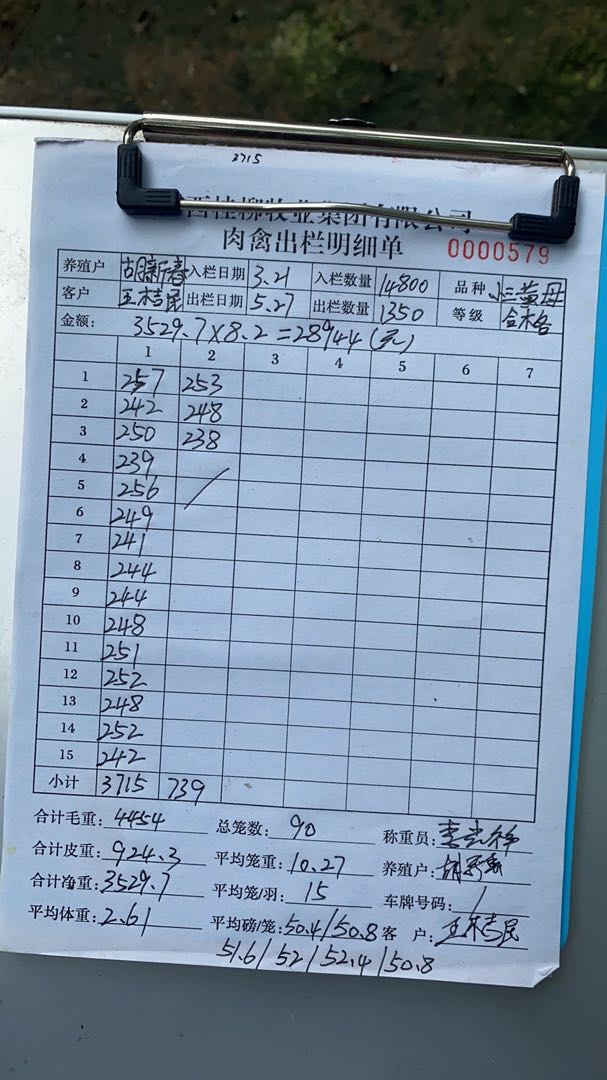 3715
西桂柳牧业集团有限公司
肉禽出栏明细单 0000579
养殖户 胡新春 入栏日期 3.21 入栏数量 14800 品种 小三黄母
客户 出栏日期 5.27 出栏数量 1350 等级 合格
金额: 3529.7×8.2=28944(元)
1 2 3 4 5 6 7
1 257 253
2 242 248
3 250 238
4 239
5 256
6 249
7 241
8 244
9 244
10 248
11 251
12 252
13 248
14 252
15 242
小计 3715 739
合计毛重: 4454 总笼数: 90 称重员:
合计皮重: 924.3 平均笼重: 10.27 养殖户: 胡新春
合计净重: 3529.7 平均笼/羽: 15 车牌号码: /
平均体重: 2.61 平均磅/笼: 50.4/50.8 客 户:
51.6/52/52.4/50.8